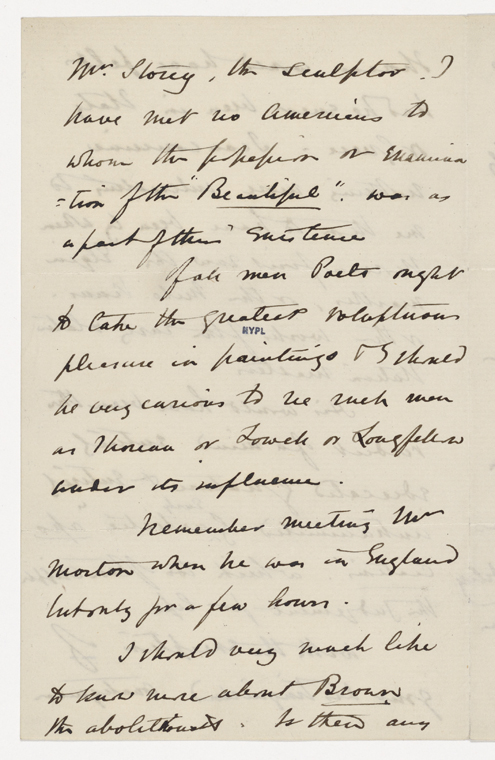 Mr. Storey, the sculptor. I
have met no Americans to
whom the profession or examina
=tion of the "Beautiful". was as
a part of their existence
Of all men Poets ought
to take the greatest voluptuous
NYPL
pleasure in paintings & I should
be very curious to see such men
as Thoreau or Lowell or Longfellow
under its influence.
Remember meeting Mr
Morton when he was in England
but only for a few hours.
I should very much like
to know more about Brown
the abolitionist. Is there any